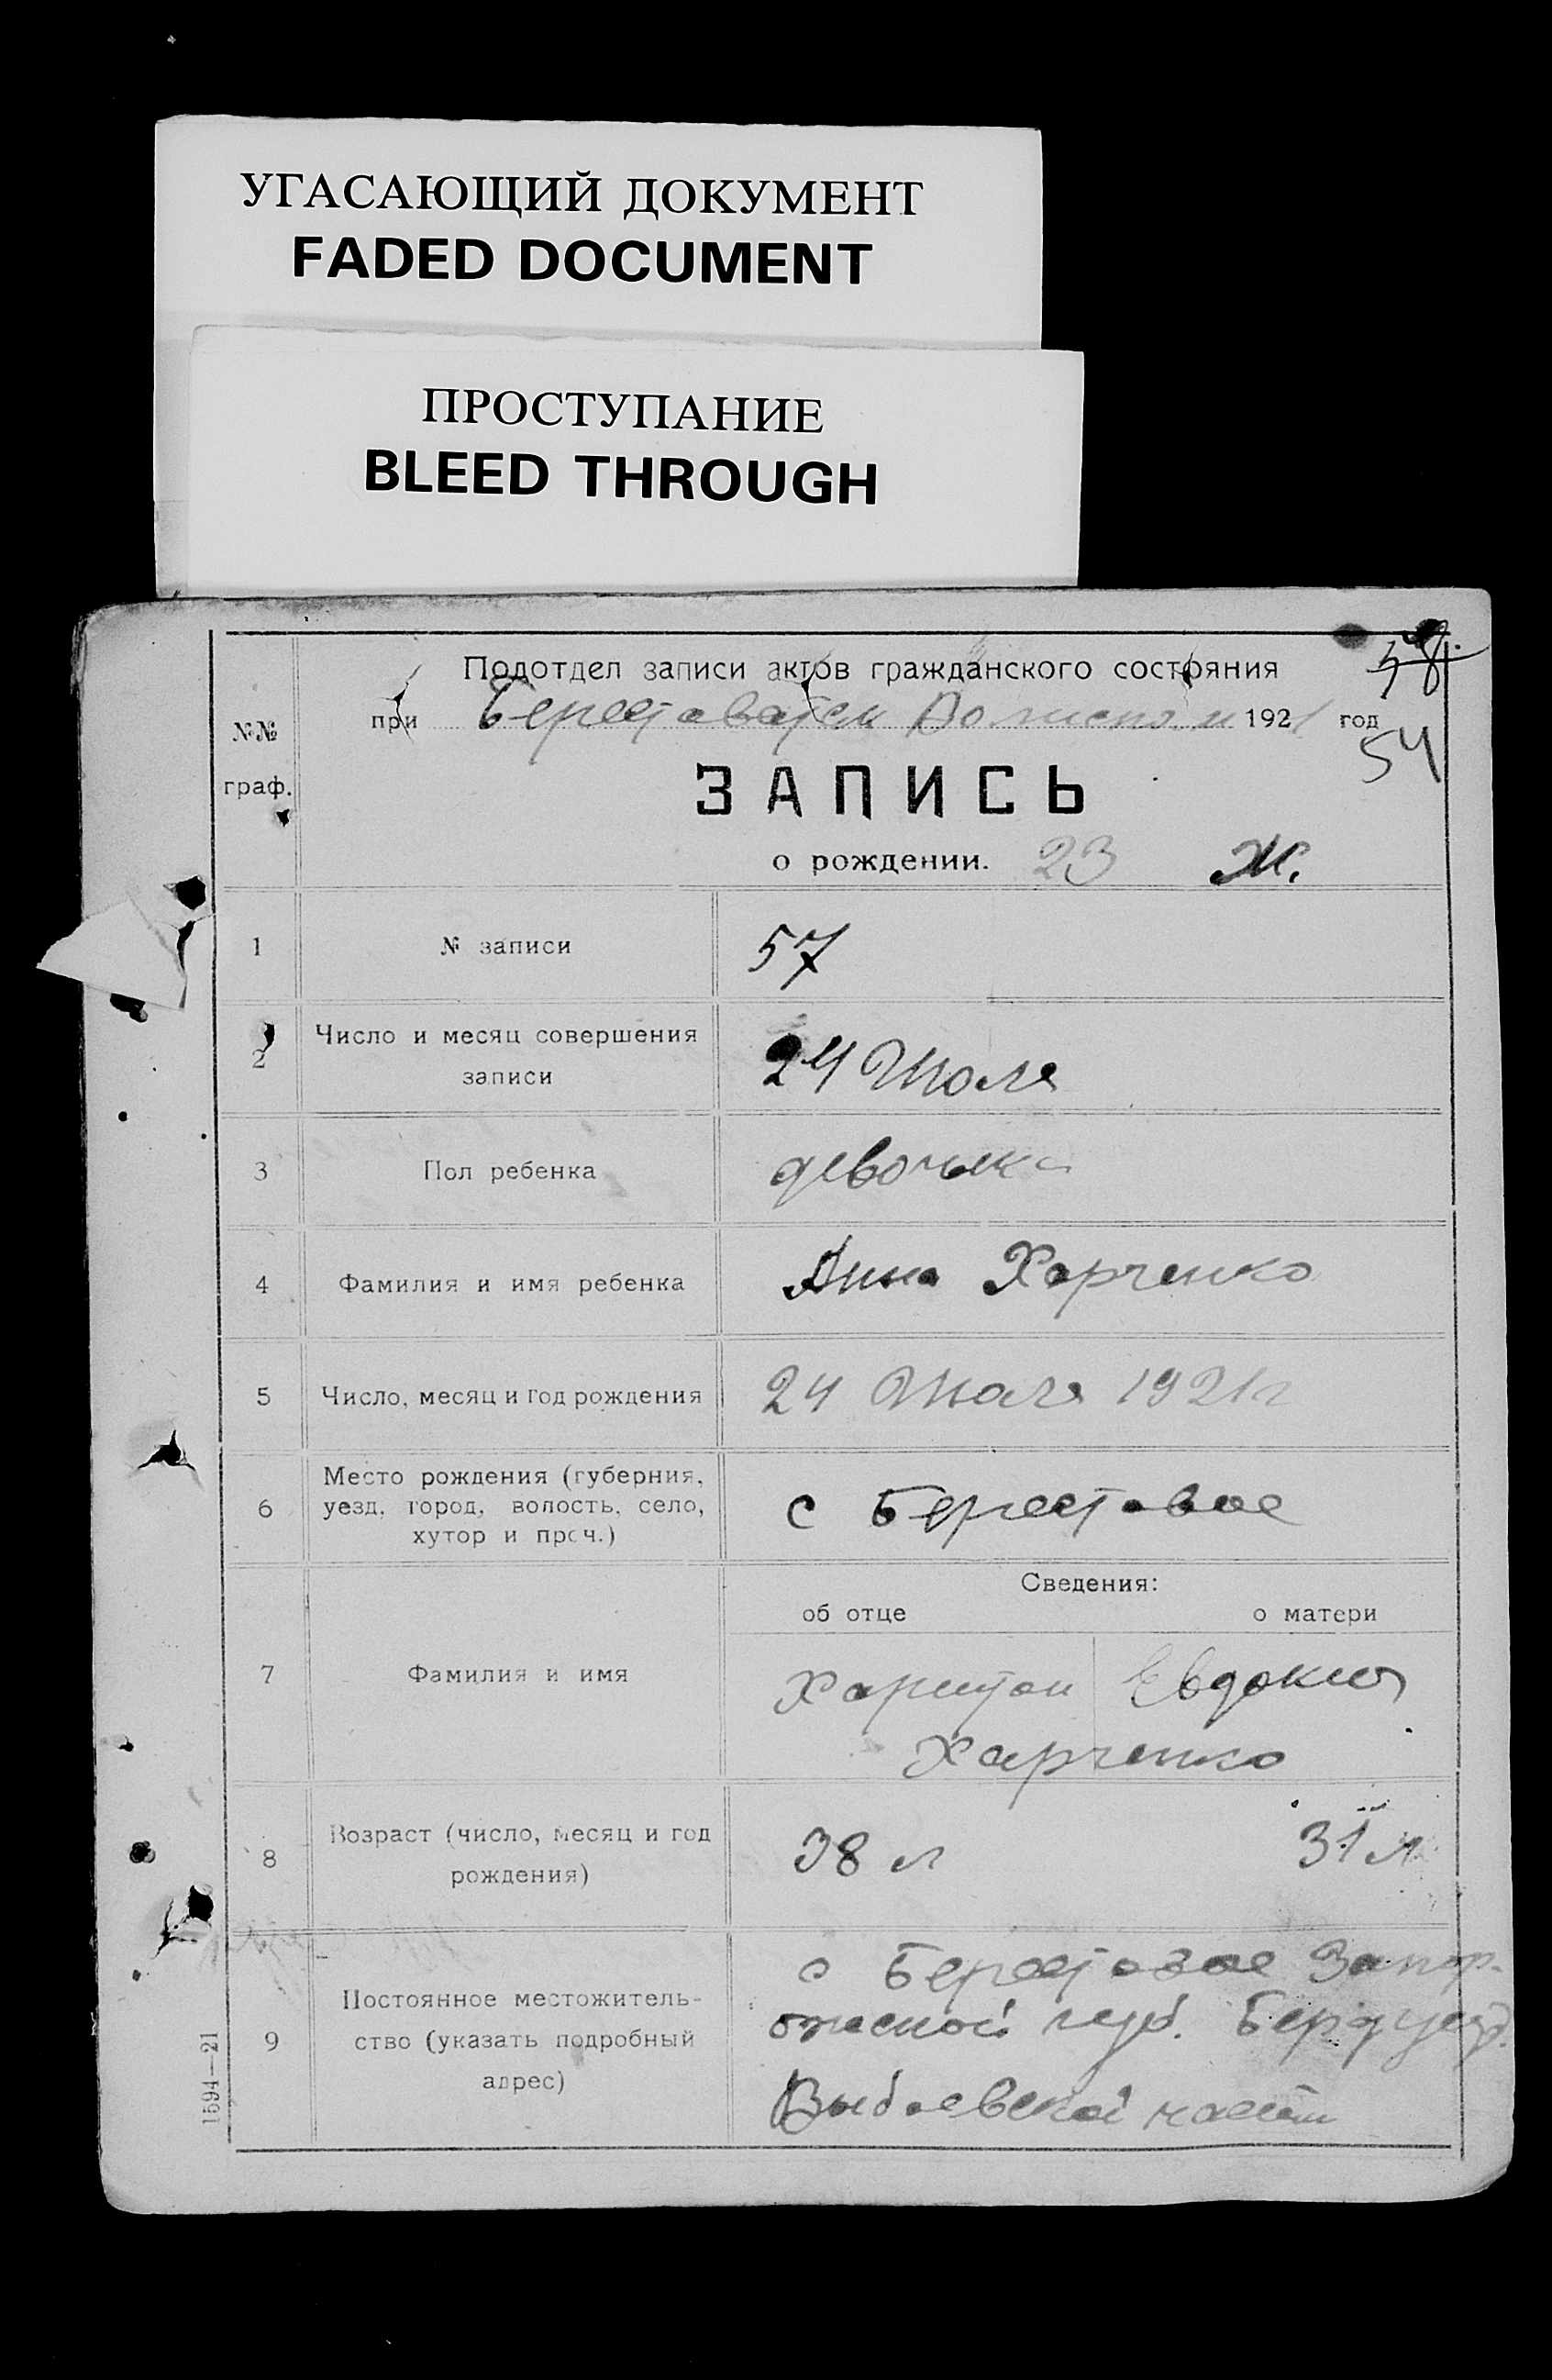 УГАСАЮЩИЙ ДОКУМЕНТ
FADED DOCUMENT
ПРОСТУПАНИЕ
BLEED THROUGH
58.
Подотдел записи актов гражданского состояния
при Берестоватск 1921 год
54
№№
граф.
ЗАПИСЬ
о рождении. 23 Ж.
1 № записи 57
2 Число и месяц совершения
записи
24 Июля
3 Пол ребенка девочка
4 Фамилия и имя ребенка Анна Харченко
5 Число, месяц и год рождения 24 Июля 1921 г
6 Место рождения (губерния,
уезд, город, волость, село,
хутор и проч.)
с Берестовое
Сведения:
об отце о матери
7 Фамилия и имя
Харитон Евдокия
Харченко
8 Возраст (число, месяц и год
рождения)
38 л 31 л
9 Постоянное местожитель-
ство (указать подробный
адрес)
с Берестовое Запор-
ожской губ. Берд уезд.
части
1594—21